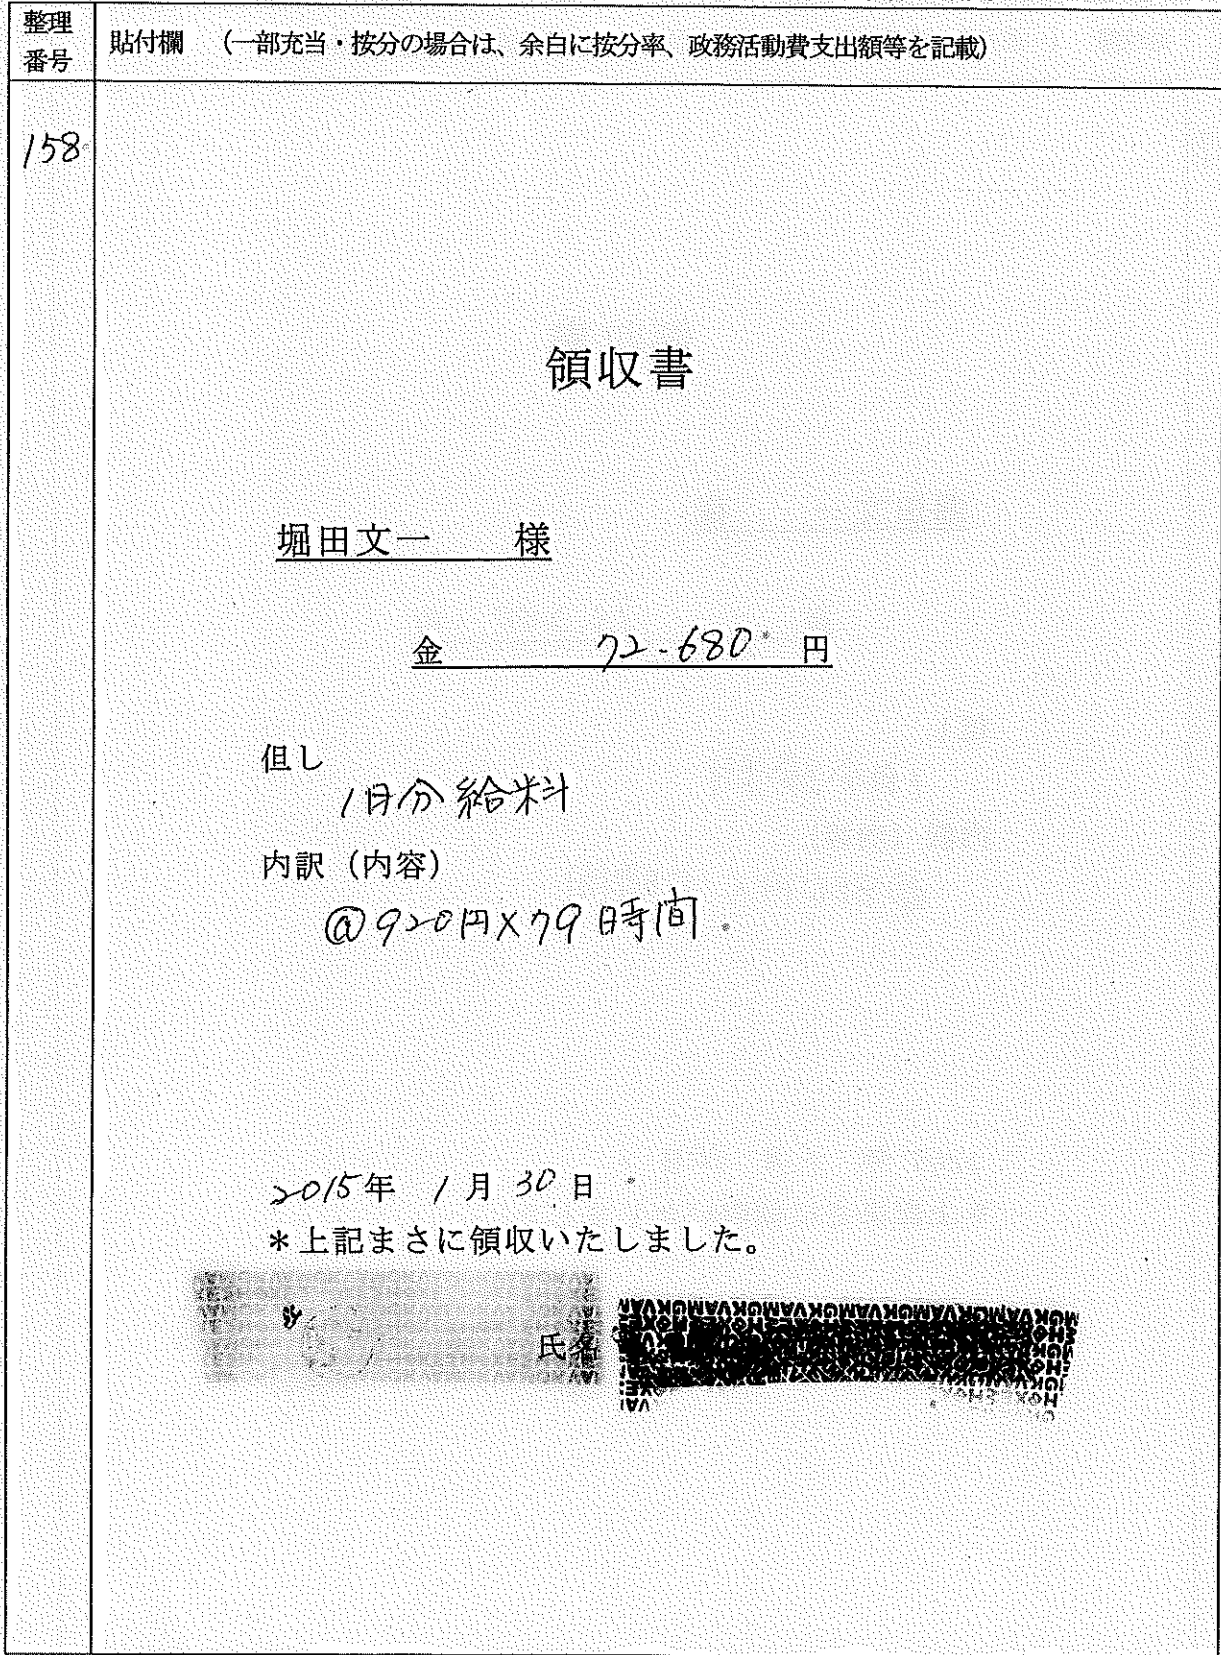 整理番号
貼付欄 （一部充当・按分の場合は、余白に按分率、政務活動費支出額等を記載）
158
領収書
堀田文一 様
金 72-680 円
但し
1月分給料
内訳（内容）
@920円×79時間
2015年 1月30日
＊上記まさに領収いたしました。
氏名